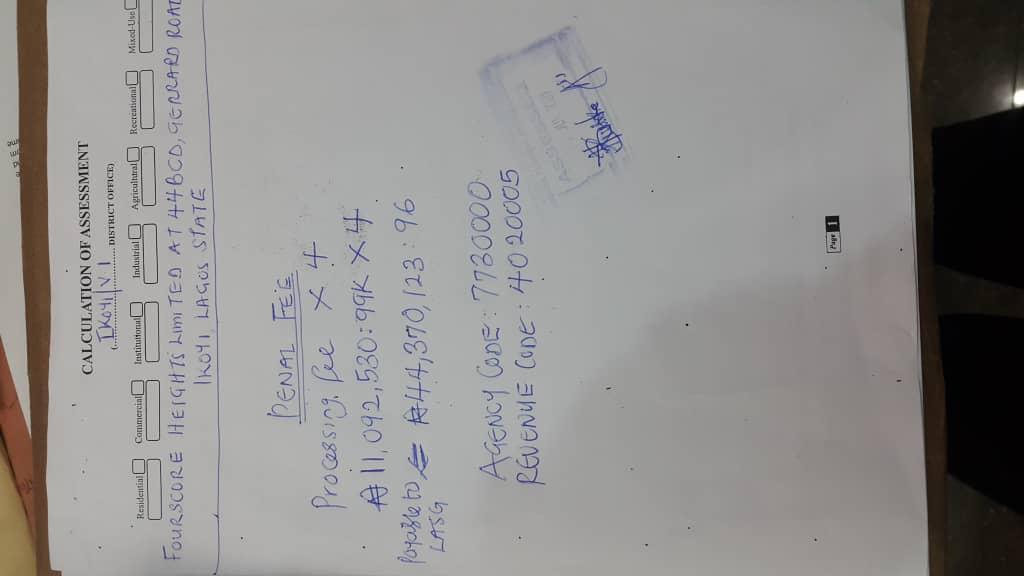 CALCULATION OF ASSESSMENT
(....IKOYI/V I.... DISTRICT OFFICE)
Residential Commercial Institutional Industrial Agricultural Recreational Mixed-Use
FOURSCORE HEIGHTS LIMITED AT 44BCD, GERRARD ROAD
IKOYI, LAGOS STATE
PENAL FEE
Processing fee X 4
₦11,092,530:99K X 4
Payable to = ₦44,370,123:96
LASG
AGENCY CODE: 7730000
REVENUE CODE: 4020005
Page 1